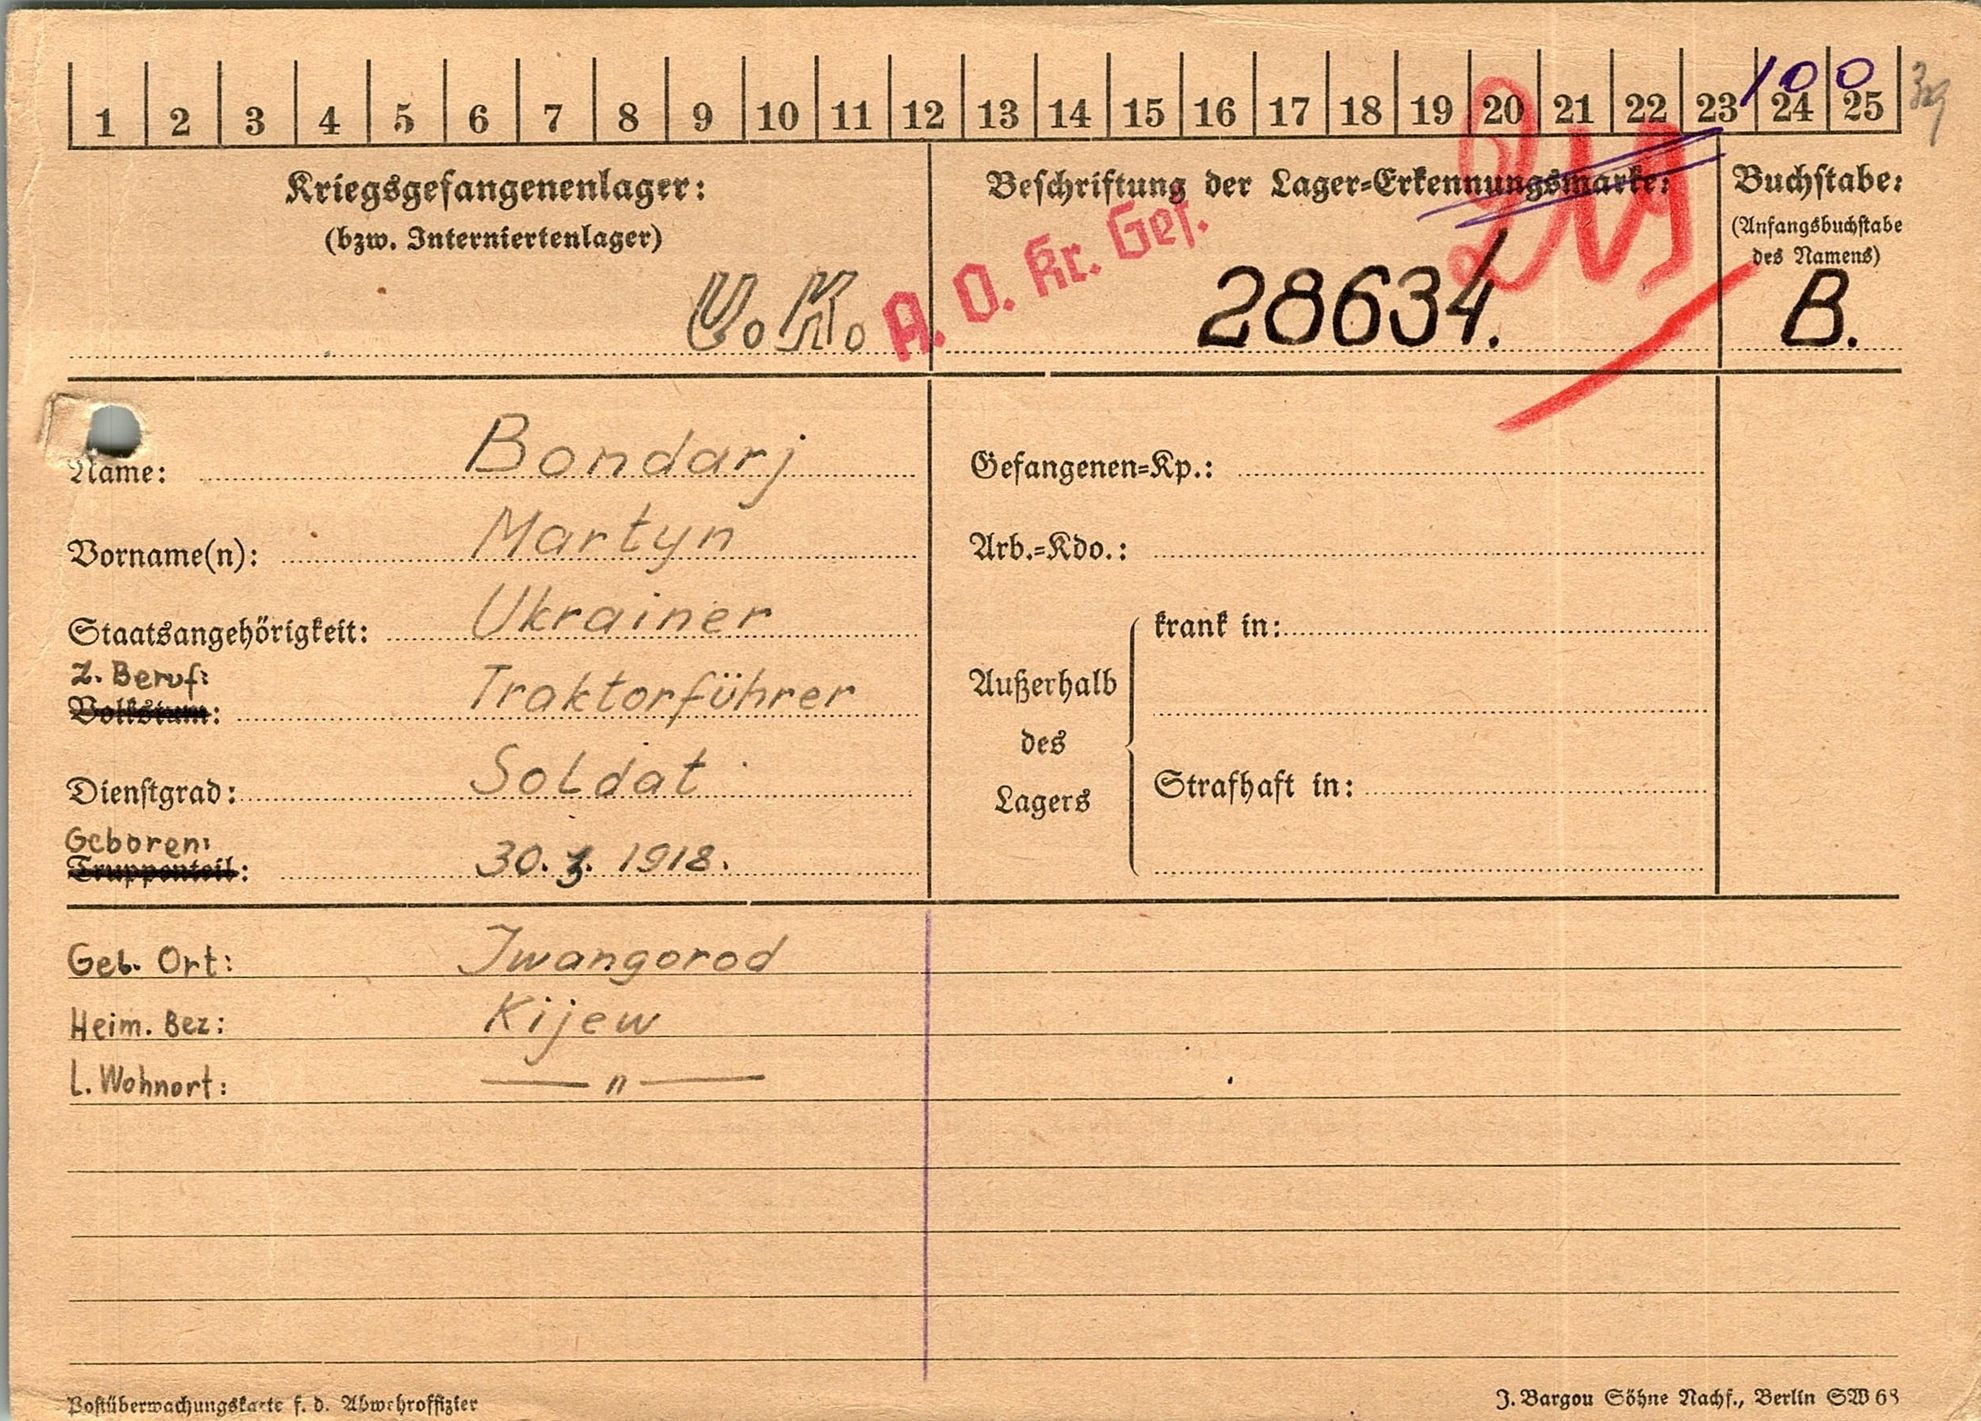 1 2 3 4 5 6 7 8 9 10 11 12 13 14 15 16 17 18 19 20 21 22 23 24 25
100
Kriegsgefangenenlager:
(bzw. Interniertenlager)
U.K.
A. O. Kr. Gef.
Beschriftung der Lager-Erkennungsmarke:
28634.
Buchstabe:
(Anfangsbuchstabe
des Namens)
B.
Name: Bondarj
Vorname(n): Martyn
Staatsangehörigkeit: Ukrainer
Z. Beruf:
Volkstum: Traktorführer
Dienstgrad: Soldat
Geboren:
Truppenteil: 30. 3. 1918.
Gefangenen-Kp.:
Arb.-Kdo.:
Außerhalb
des
Lagers
krank in:
Strafhaft in:
Geb. Ort: Iwangorod
Heim. Bez: Kijew
L. Wohnort: — " —
Postüberwachungskarte f. d. Abwehroffizier
J. Bargou Söhne Nachf., Berlin SW 68